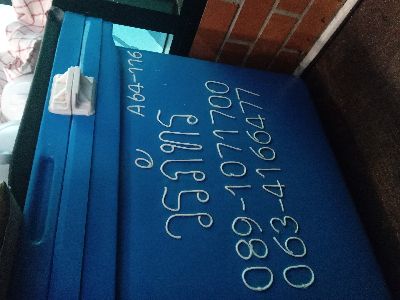 A64-116
วรภัทร
089-1071700
063-4166477